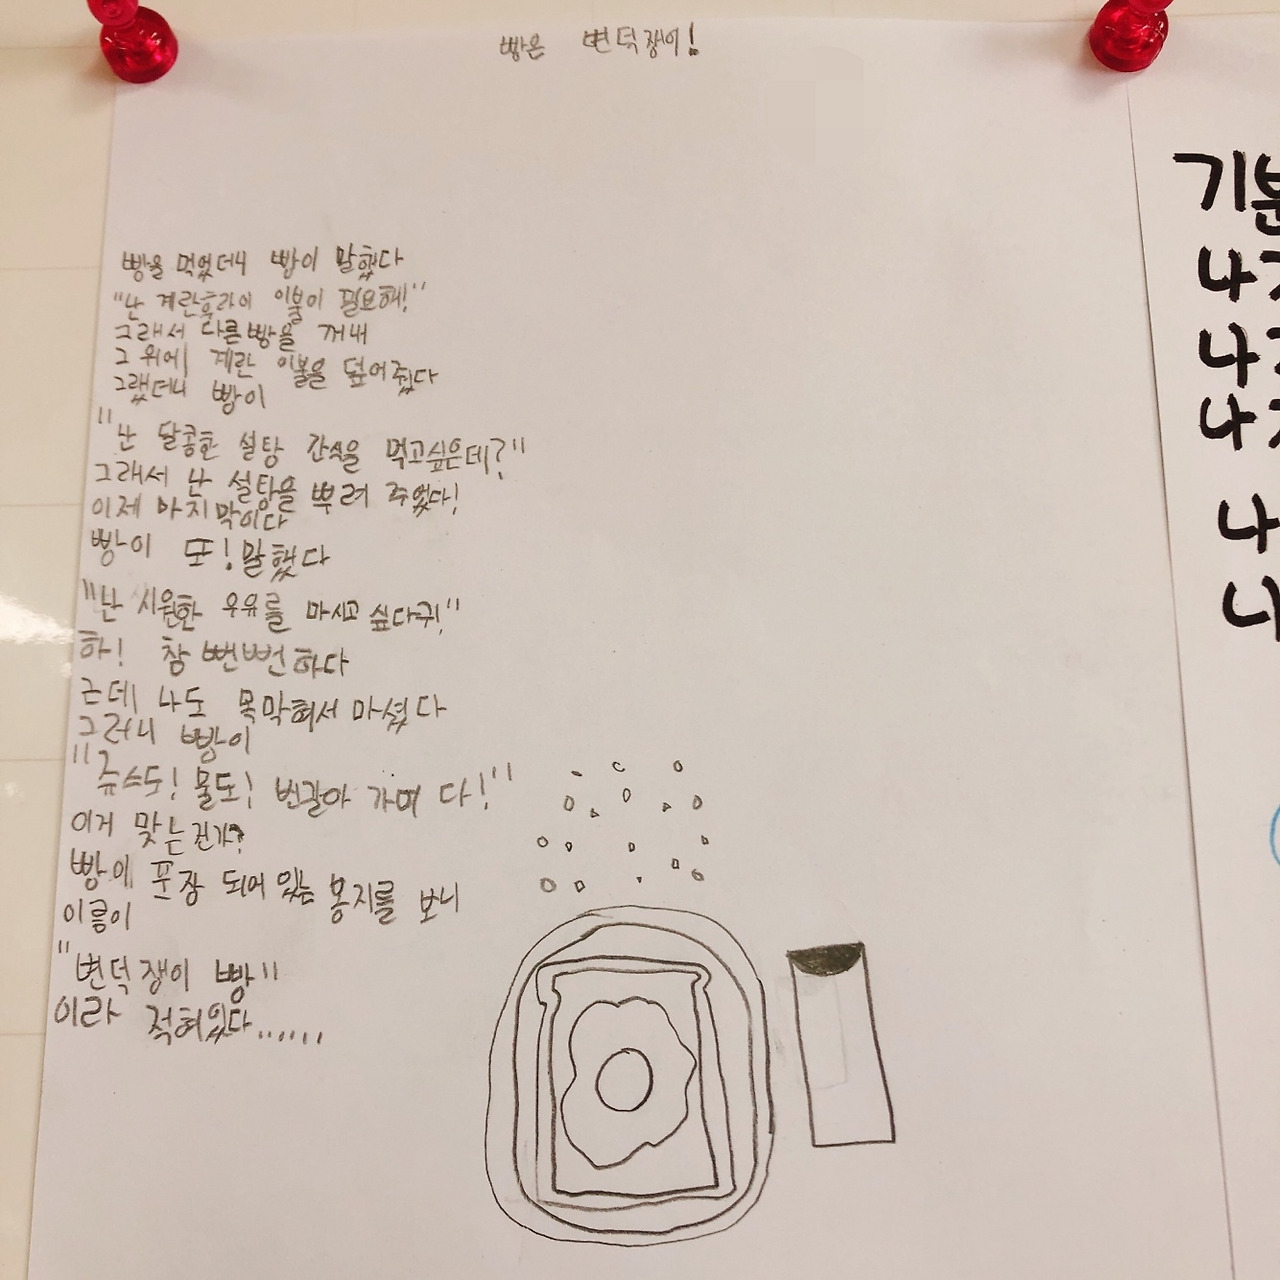 빵은 변덕쟁이!
빵을 먹었더니 빵이 말했다
"난 계란후라이 이불이 필요해!"
그래서 다른빵을 꺼내
그 위에 계란 이불을 덮어줬다
그랬더니 빵이
"난 달콤한 설탕 간식을 먹고싶은데?"
그래서 난 설탕을 뿌려 주었다!
이제 마지막이다
빵이 또! 말했다
"난 시원한 우유를 마시고 싶다구!"
하! 참 뻔뻔하다
근데 나도 목막혀서 마셨다
그러니 빵이
"쥬스도! 물도! 번갈아 가며 다!"
이거 맞는건가?
빵이 포장 되어 있는 봉지를 보니
이름이
"변덕쟁이 빵"
이라 적혀있다......
기분
나
나
나
나